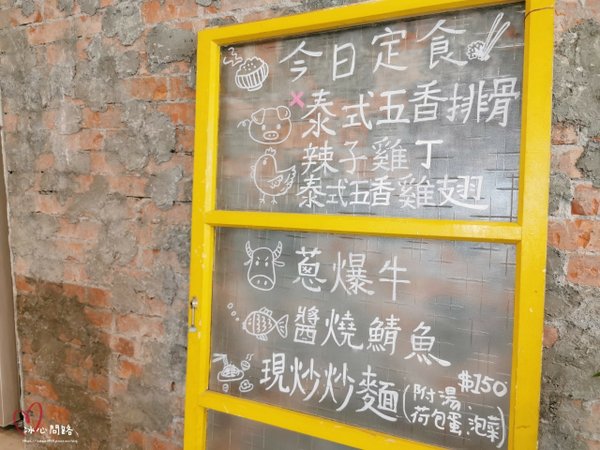 今日定食
泰式五香排骨
辣子雞丁
泰式五香雞翅
蔥爆牛
醬燒鯖魚
現炒炒麵
$150
(附湯、
荷包蛋、泡菜)
冰心問路